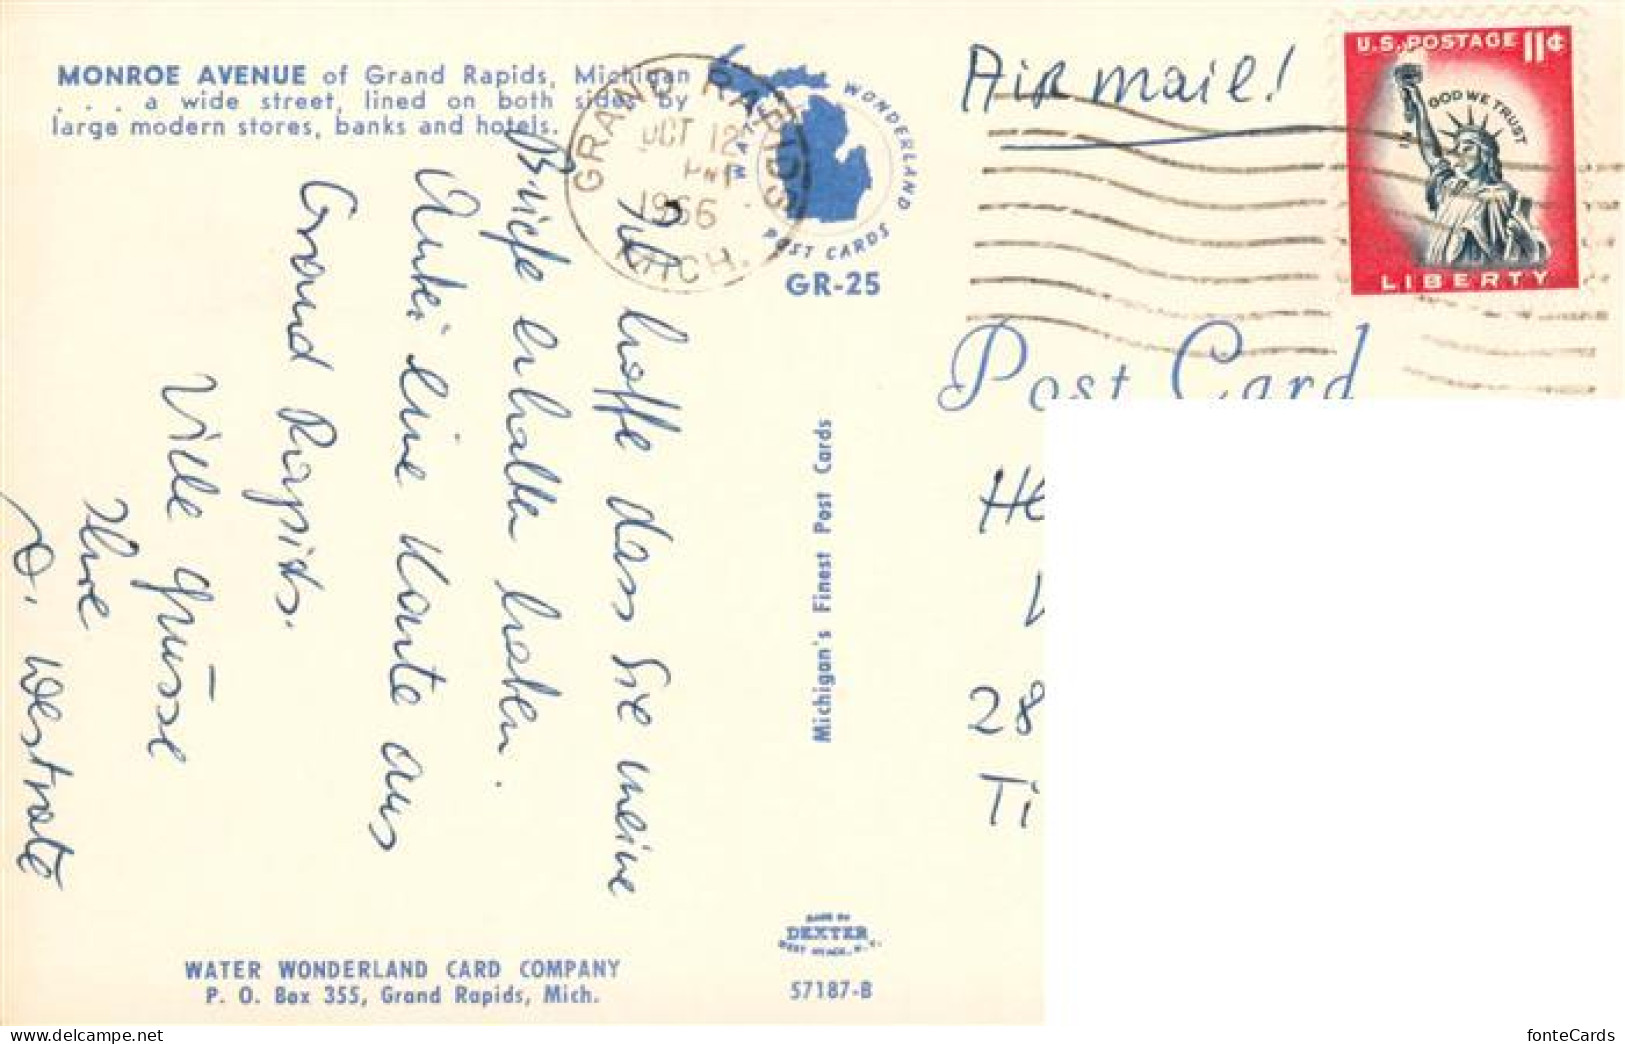 MONROE AVENUE of Grand Rapids, Michigan
. . . a wide street, lined on both sides by
large modern stores, banks and hotels.
GRAND RAPIDS
OCT 12
PM
1966
MICH.
WATER WONDERLAND
POST CARDS
GR-25
Air mail!
U.S. POSTAGE 11¢
IN GOD WE TRUST
LIBERTY
Post Card
Ich hoffe dass Sie meine
Briefe erhalten haben.
Anbei eine Karte aus
Grand Rapids.
Viele Grüsse
Ihre
D. Westrate
Michigan's Finest Post Cards
28
Ti
MADE BY
DEXTER
WEST NYACK, N. Y.
57187-B
WATER WONDERLAND CARD COMPANY
P. O. Box 355, Grand Rapids, Mich.
www.delcampe.net
fonteCards